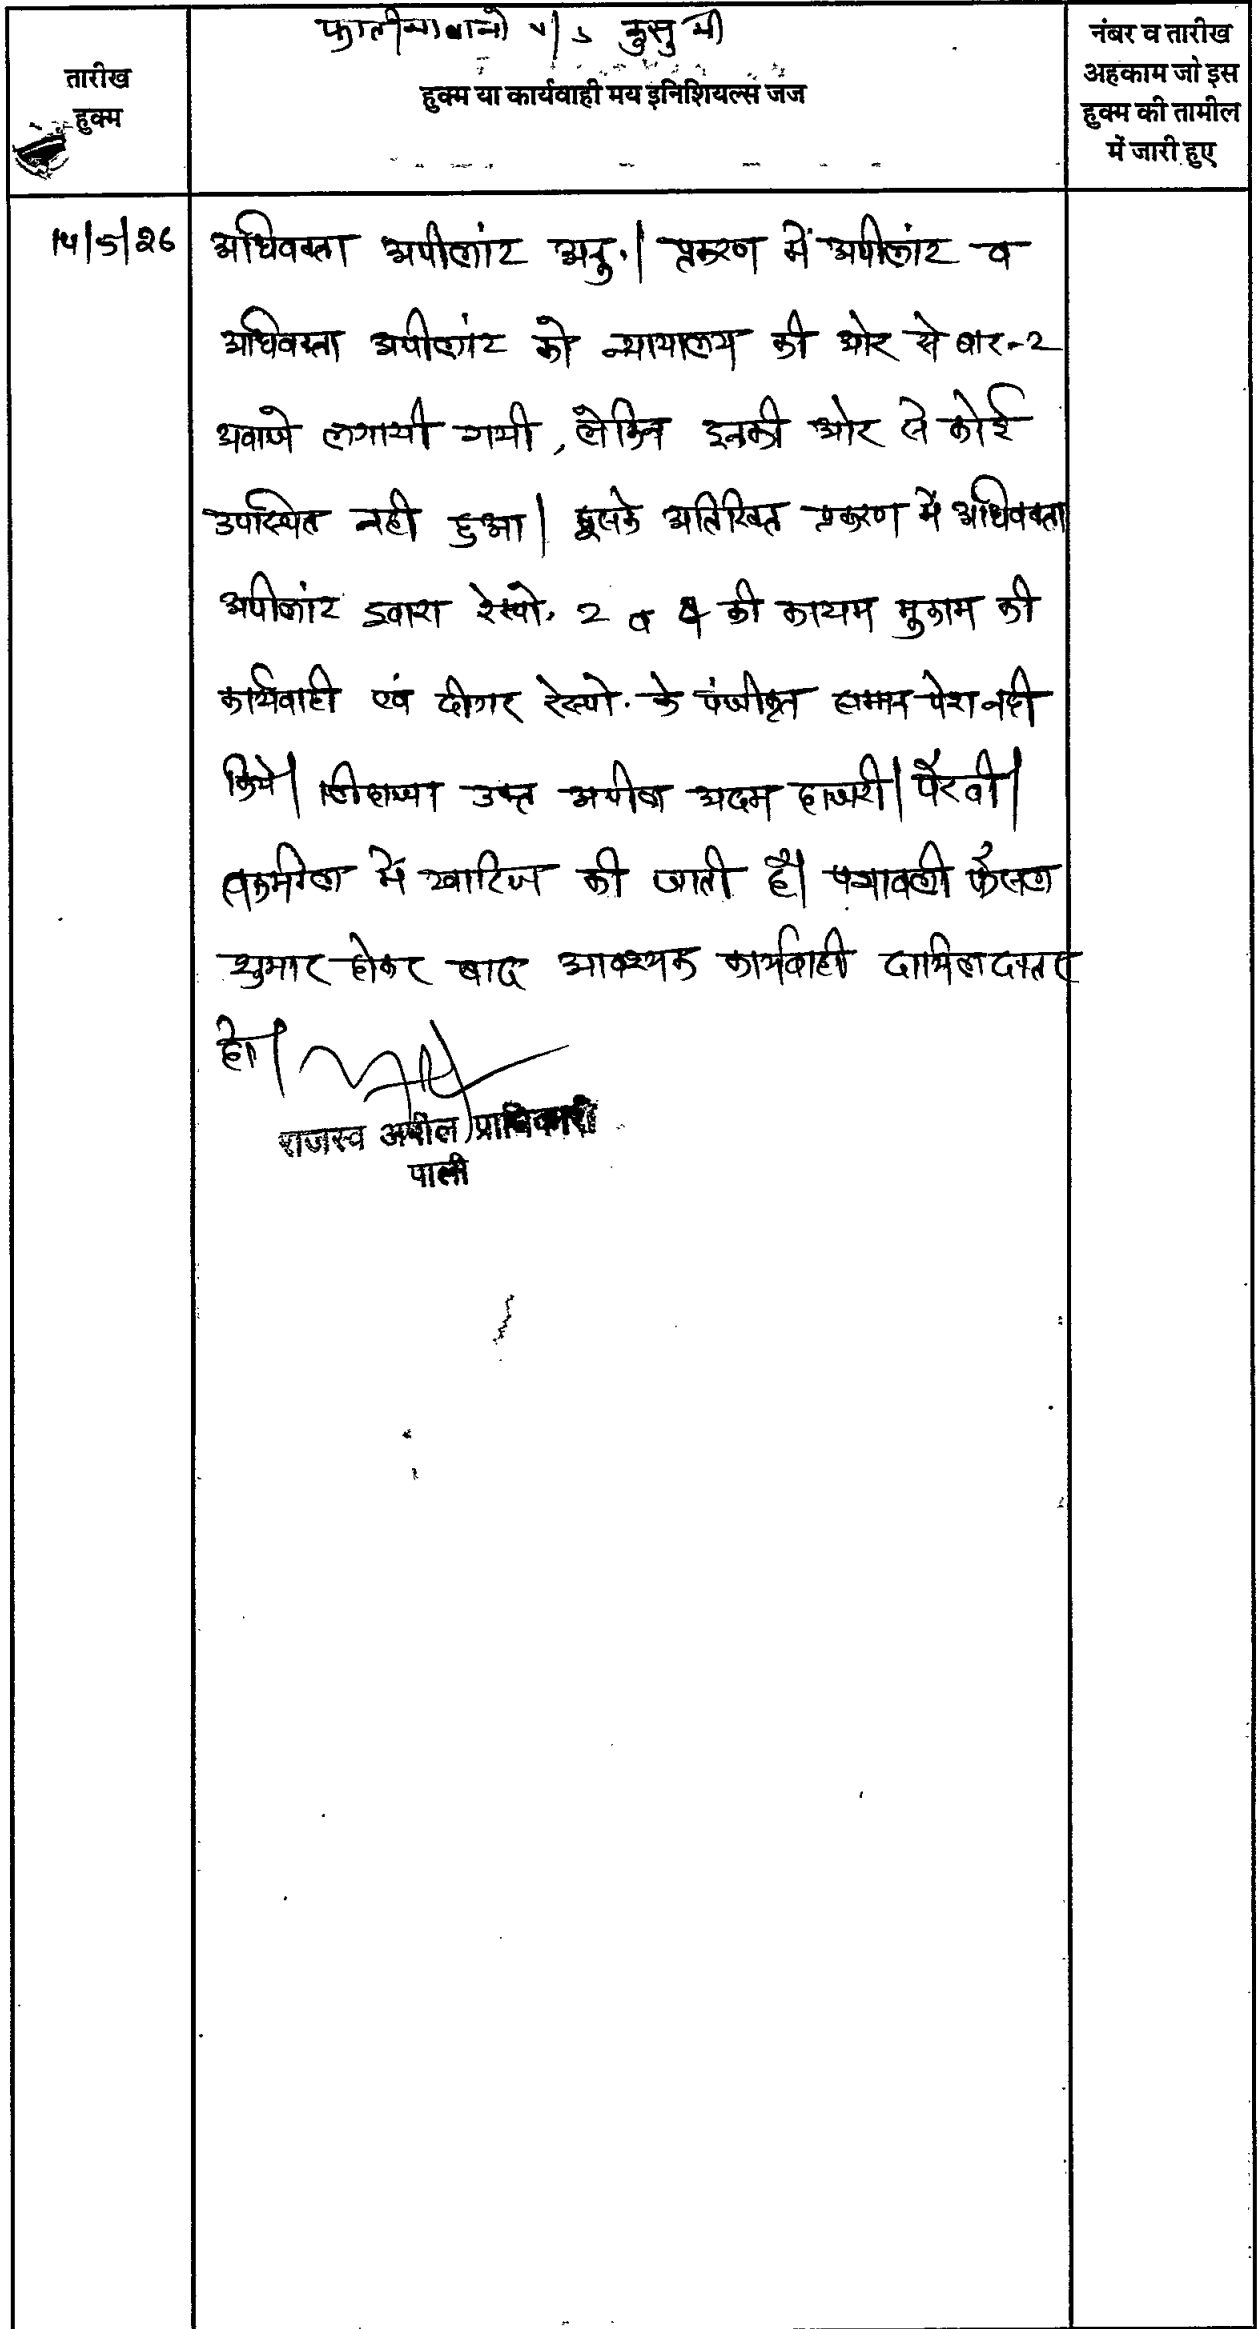 फातीमाबानो v/s कुसुमी
तारीख
हुक्म
हुक्म या कार्यवाही मय इनिशियल्स जज
नंबर व तारीख
अहकाम जो इस
हुक्म की तामील
में जारी हुए
14/5/26
अधिवक्ता अपीलांट अनु.। प्रकरण में अपीलांट व
अधिवक्ता अपीलांट को न्यायालय की ओर से बार-2
अवाजे लगायी गयी, लेकिन इनकी ओर से कोई
उपस्थित नही हुआ। इसके अतिरिक्त प्रकरण में अधिवक्ता
अपीलांट द्वारा रेस्पो. 2 व 4 की कायम मुकाम की
कार्यवाही एवं दीगर रेस्पो. के पंजीकृत सम्मन पेश नही
किये। लिहाजा उक्त अपील अदम हाजरी। पैरवी।
तकमीला में खारिज की जाती है। पत्रावली फैसल
शुमार होकर बाद आवश्यक कार्यवाही दाखिल दफ्तर
हो।
राजस्व अपील प्राधिकारी
पाली